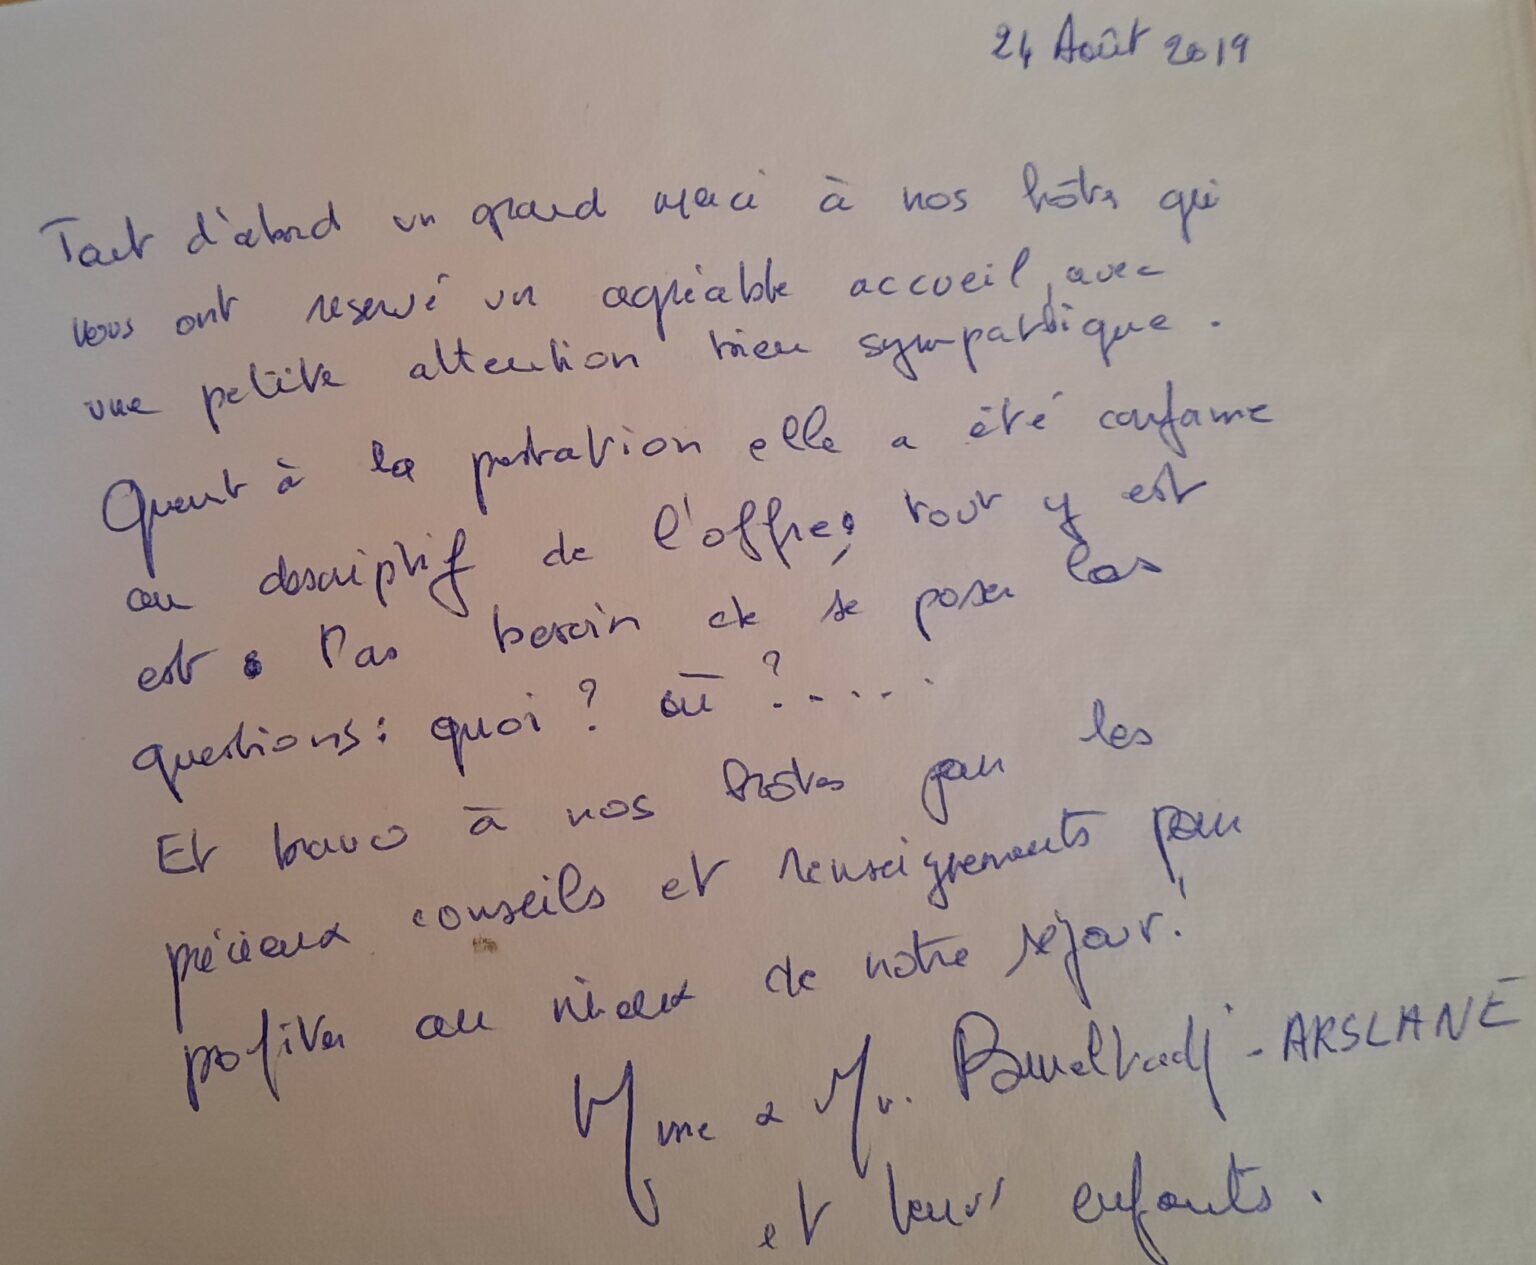 24 Août 2019
Tout d'abord un grand merci à nos hôtes qui
nous ont reservé un agréable accueil, avec
une petite attention bien sympathique.
Quant à la prestation elle a été conforme
au descriptif de l'offre; tout y est
est. Pas besoin de se poser les
questions: quoi? où?.....
Et bravo à nos hôtes pour les
précieux conseils et renseignements pour
profiter au mieux de notre séjour!
Mme & Mr. Benelhadj - ARSLANE
et leurs enfants.